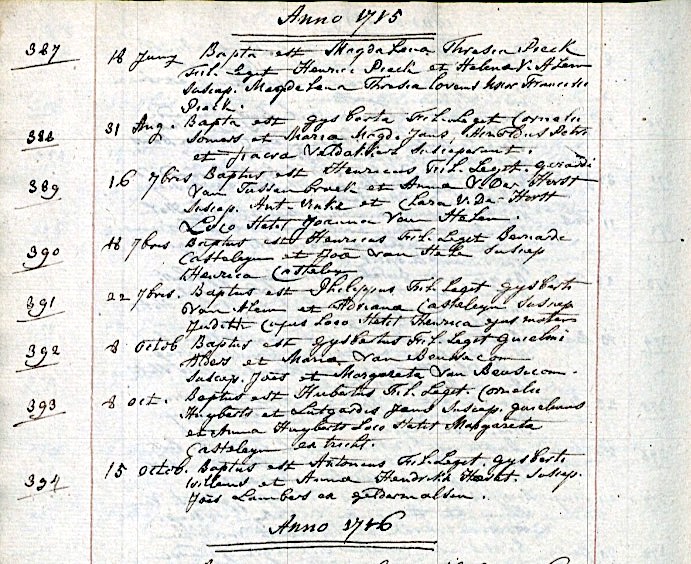 Anno 1715
387 18 Juny Bapta est Magdalena Thresia Pieck
Fil. Leget Henrici Pieck et Helena V. Alem
suscep. Magdalena Thresia Lovens uxor Francisci
Pieck.
388 31 Aug. Bapta est Gysberta Fil. Leget Cornelii
Somers et Maria Magd. Jans
et susceperunt.
389 16 7bris Baptus est Henricus Fil. Leget. Gerardi
Van Tussenbroek et Anna V. Der Horst
suscep. Ant. et Clara V. Der Horst
Loco Stetit Joanna Van Halem.
390 18 7bris Baptus est Henricus Fil. Leget Bernardi
Casteleyn et Joa Van suscep
Henrica Casteleyn
391 22 7bris. Baptus est Philippus Fil. Leget Gysberti
Van Alem et Adriana Casteleyn suscep
Judith Loco Stetit Henrica
392 8 octob Baptus est Gysbertus Fil. Leget Guielmi
Alders et Maria Van Beusecom
suscep. Joes et Margareta Van Beusecom.
393 8 oct. Baptus est Hubertus Fil. Leget. Cornelii
Huyberts et Lutgardis Jans suscep. Guielmus
et Anna Huyberts Loco Stetit Margareta
Casteleyn ex tricht.
394 15 octob. Baptus est Antonius Fil. Leget Gysberti
Willems et Anna Hendrikx suscep.
Joes Lambers ex geldermalsen.
Anno 1716